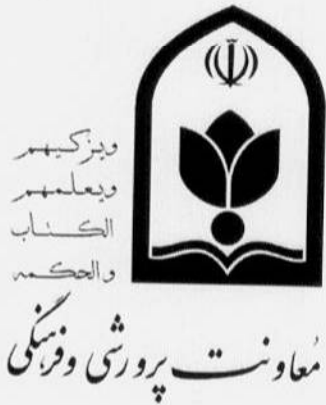 ویزکیهم
ویعلمهم
الکتاب
والحکمه
مُعاونت پرورشی وفرهنگی